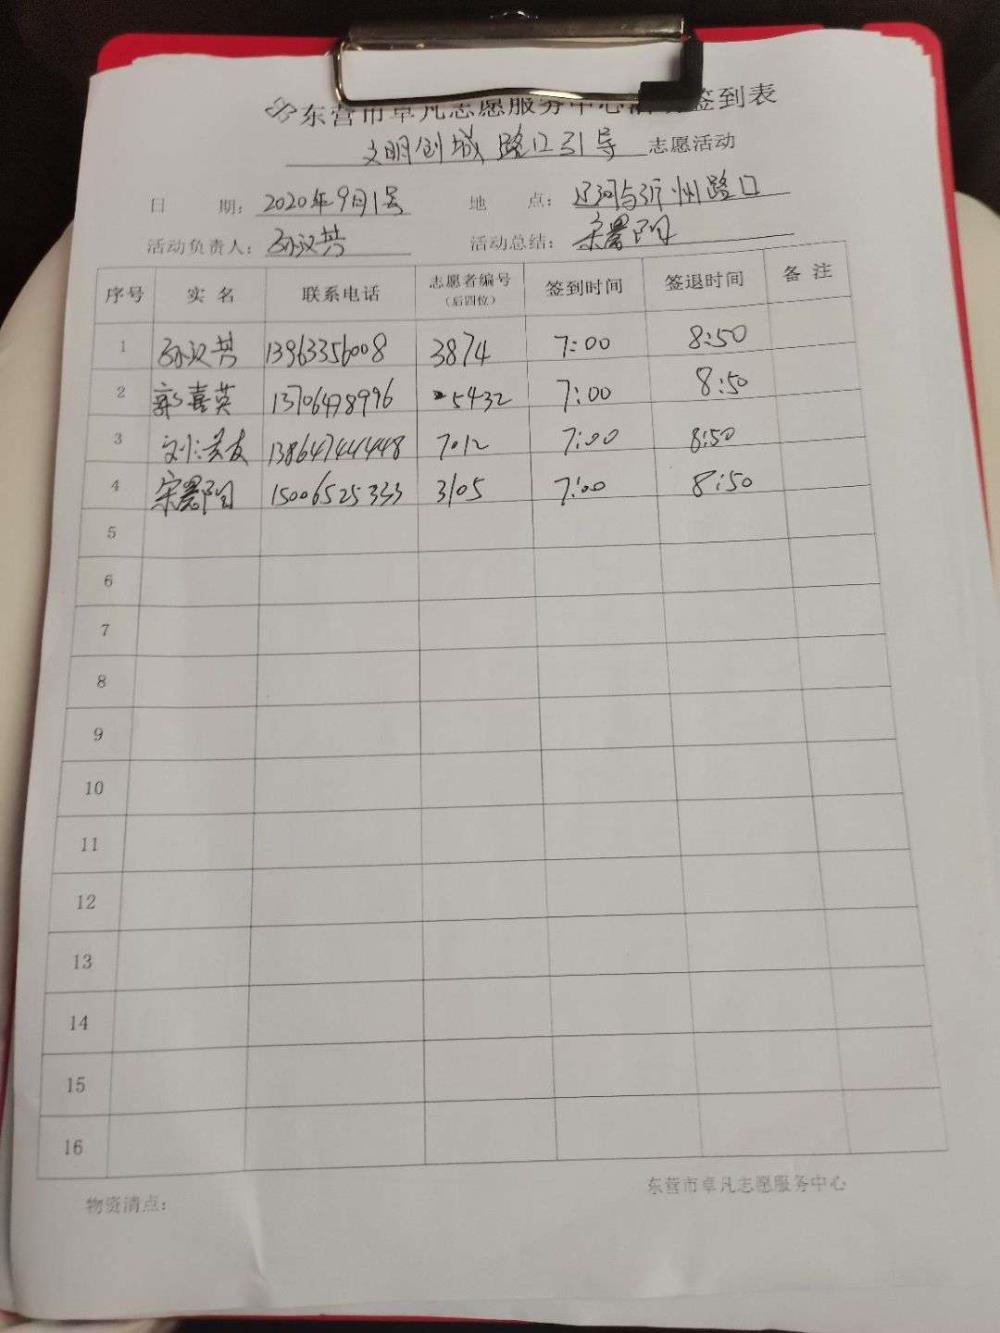 东营市卓凡志愿服务中心活动签到表
文明创城 路口引导 志愿活动
日 期: 2020年9月1号 地 点: 辽河与沂州路口
活动负责人: 孙汉芳 活动总结:
序号 实名 联系电话 志愿者编号 (后四位) 签到时间 签退时间 备注
1 孙汉芳 13963356008 3874 7:00 8:50
2 郭喜英 13706498996 5432 7:00 8:50
3 13864744448 7012 7:00 8:50
4 15006525333 3105 7:00 8:50
5
6
7
8
9
10
11
12
13
14
15
16
东营市卓凡志愿服务中心
物资清点: